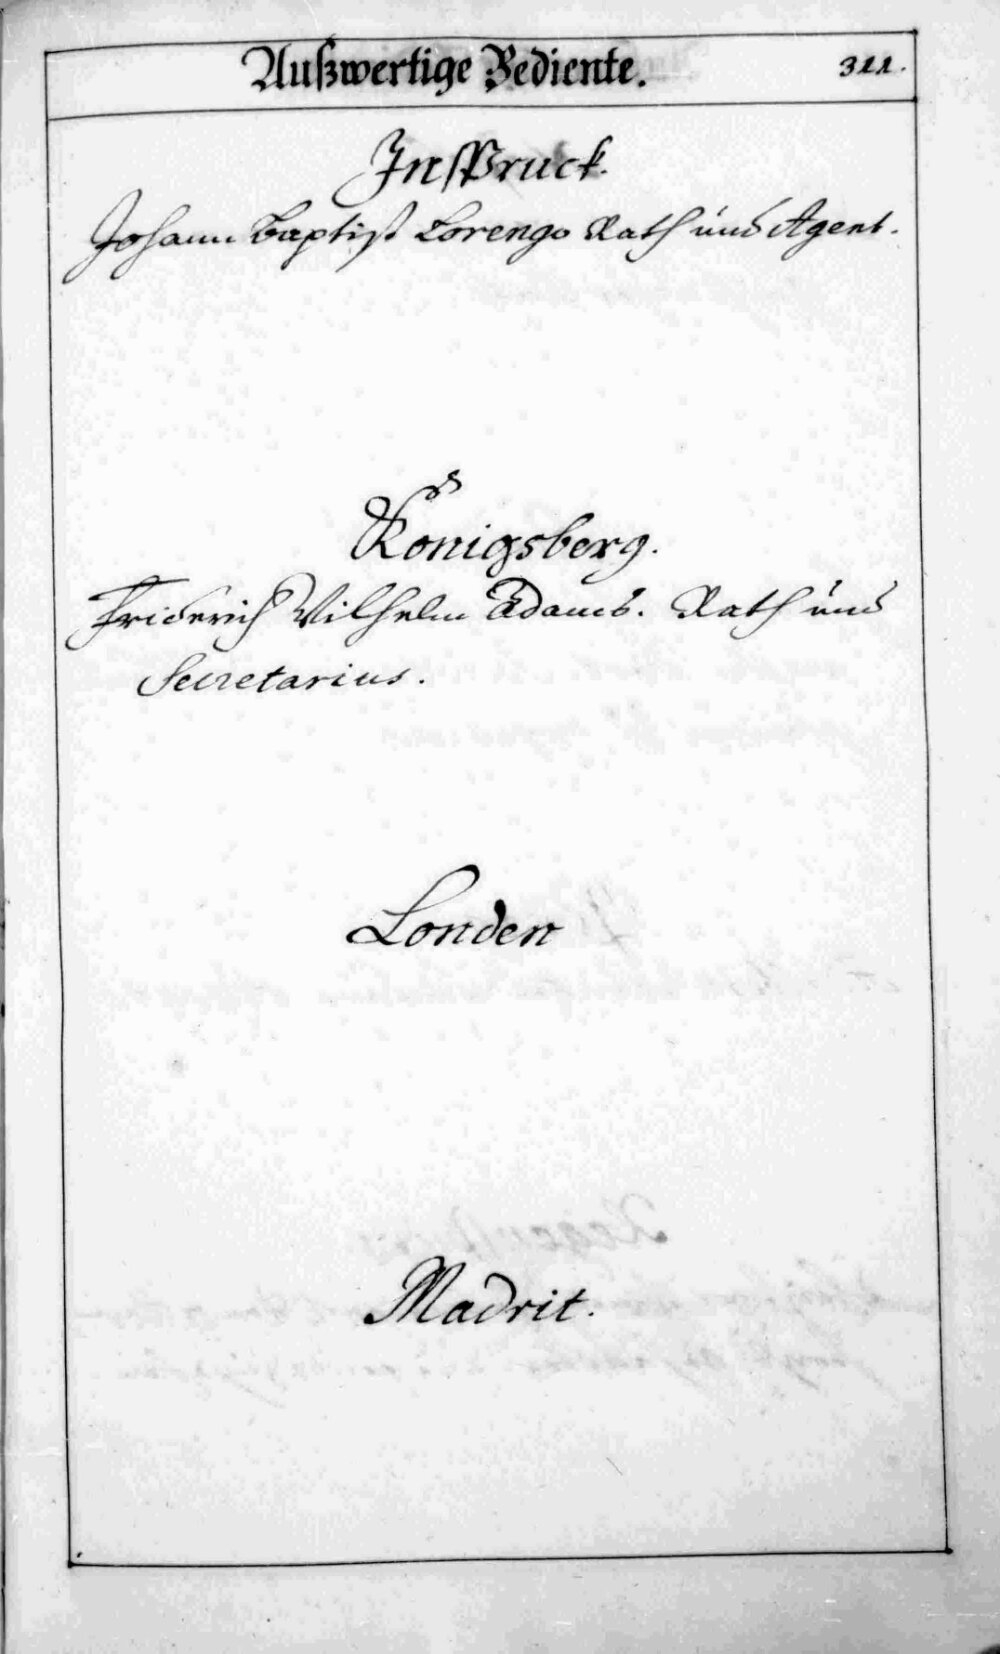 Außwertige Bediente. 311.
Inspruck.
Johann Baptist Lorengo Rath und Agent.
Königsberg.
Friderich Wilhelm Adami. Rath und
Secretarius.
Londen
Madrit.